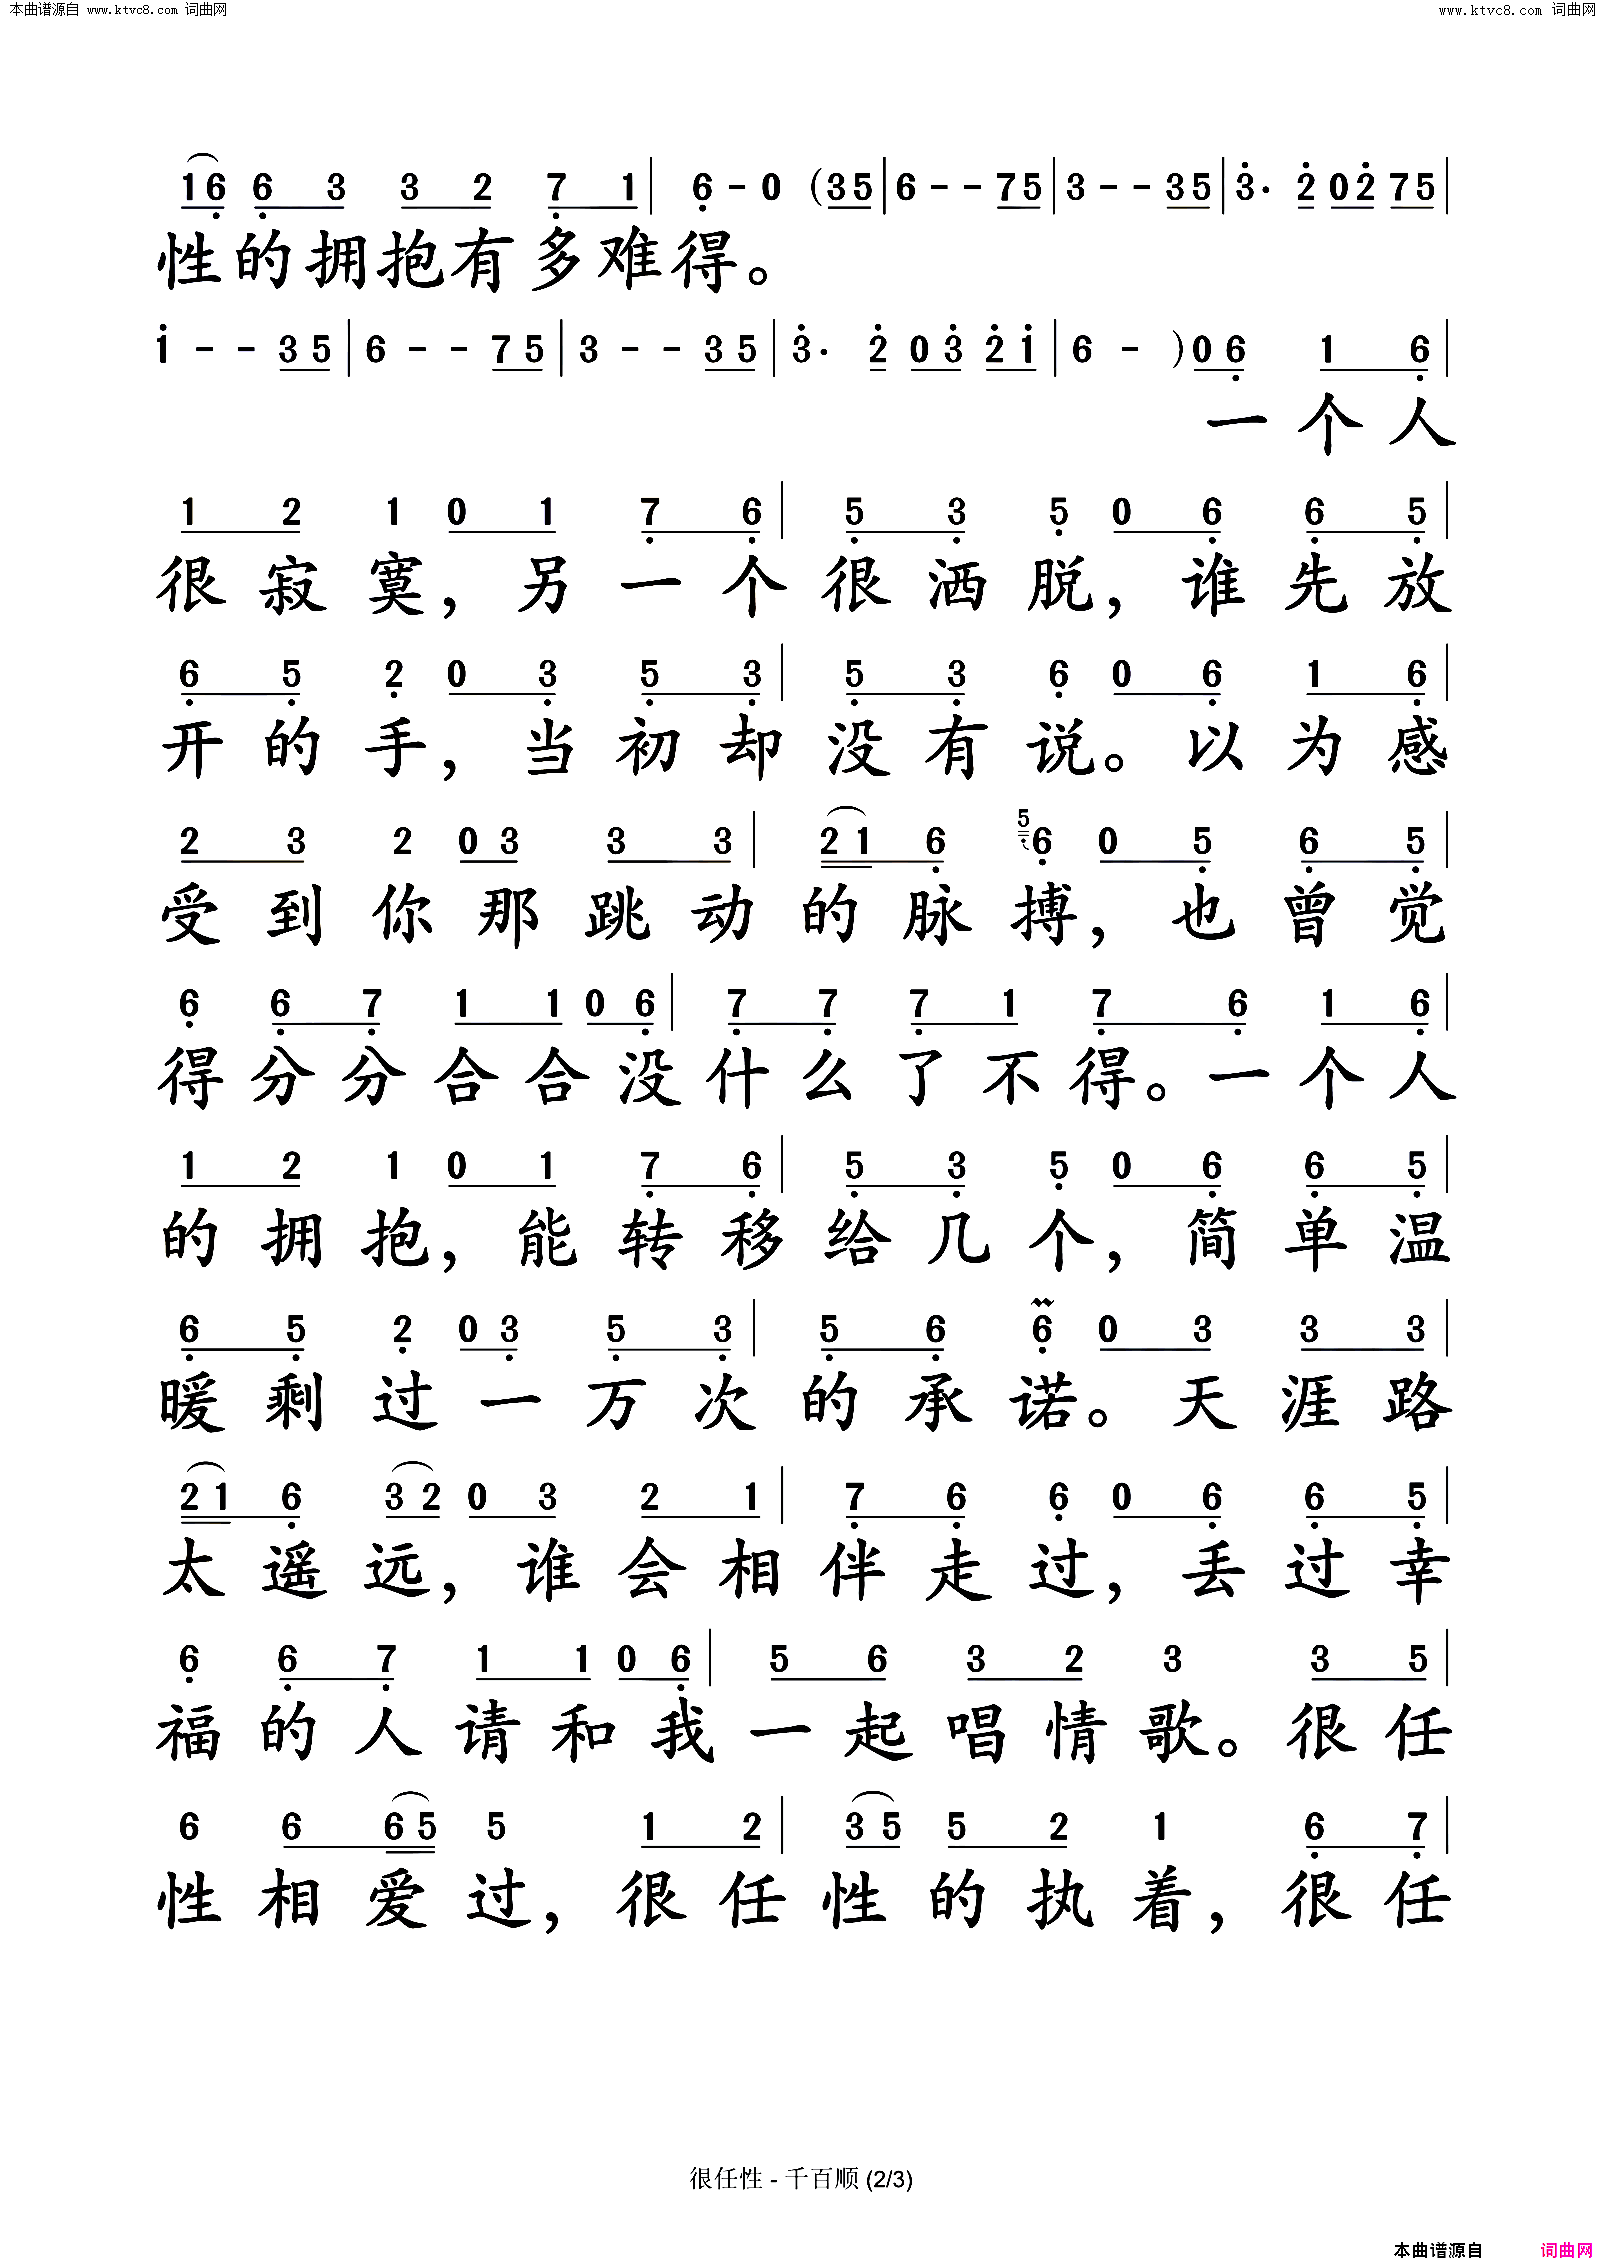 本曲谱源自 www.ktvc8.com 词曲网
www.ktvc8.com 词曲网
16 6 3 3 2 7 1 | 6 - 0 (35 | 6 - - 75 | 3 - - 35 | 3· 2 02 75 |
性的拥抱有多难得。
1 - - 35 | 6 - - 75 | 3 - - 35 | 3· 2 03 21 | 6 - ) 06 1 6 |
一个人
1 2 1 0 1 7 6 | 5 3 5 0 6 6 5 |
很寂寞，另一个很洒脱，谁先放
6 5 2 0 3 5 3 | 5 3 6 0 6 1 6 |
开的手，当初却没有说。以为感
2 3 2 0 3 3 3 | 21 6 5 6 0 5 6 5 |
受到你那跳动的脉搏，也曾觉
6 6 7 1 1 0 6 | 7 7 7 1 7 6 1 6 |
得分分合合没什么了不得。一个人
1 2 1 0 1 7 6 | 5 3 5 0 6 6 5 |
的拥抱，能转移给几个，简单温
6 5 2 0 3 5 3 | 5 6 6 0 3 3 3 |
暖剩过一万次的承诺。天涯路
21 6 32 0 3 2 1 | 7 6 6 0 6 6 5 |
太遥远，谁会相伴走过，丢过幸
6 6 7 1 1 0 6 | 5 6 3 2 3 3 5 |
福的人请和我一起唱情歌。很任
6 6 65 5 1 2 | 35 5 2 1 6 7 |
性相爱过，很任性的执着，很任
很任性 - 千百顺 (2/3)
本曲谱源自 词曲网